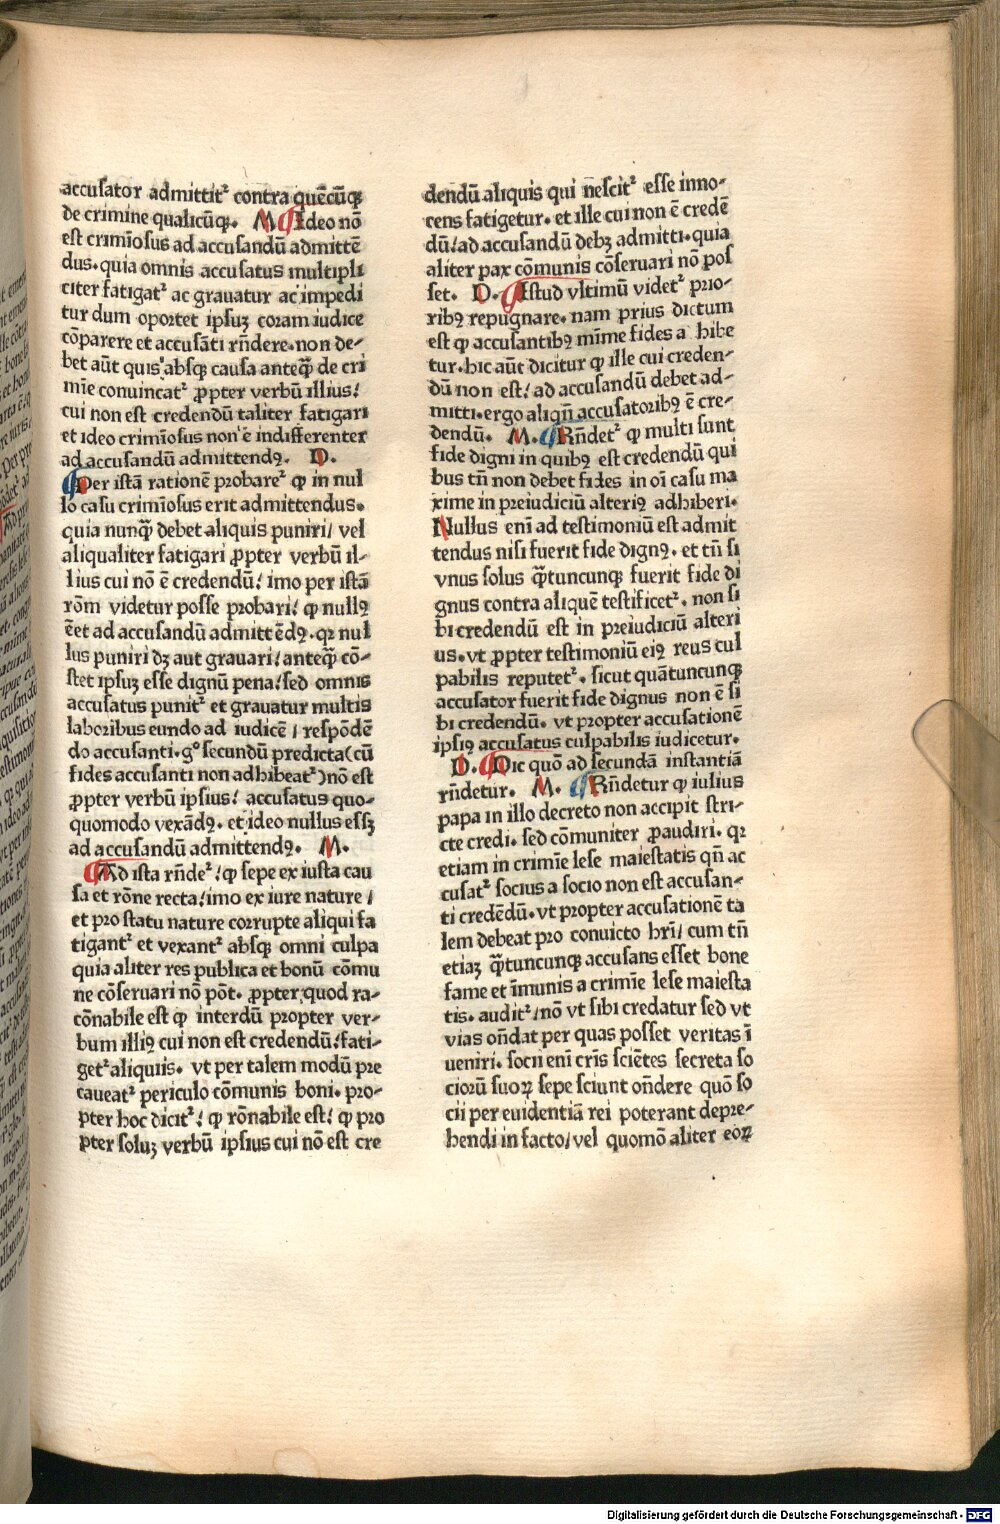 accusator admittitᷣ contra quēcūqꝫ
de crimine qualicūqꝫ. M. Ideo nō
est crimīosus ad accusandū admittē
dus. quia omnis accusatus multipli
citer fatigatᷣ ac grauatur ac impedi
tur dum oportet ipsuꝫ coram iudice
cōparere et accusāti rn̄dere. non de⸗
bet aūt quis absqꝫ causa anteqꝫ̄ de cri
mīe conuincatᷣ ꝓpter verbū illius/
cui non est credendū taliter fatigari
et ideo crimīosus non ē indifferenter
ad accusandū admittendꝰ. D.
Per istā rationē probareᷣ ꝙ in nul
lo casu crimīosus erit admittendus.
quia nunqꝫ̄ debet aliquis puniri/ vel
aliqualiter fatigari ꝓpter verbū il⸗
lius cui nō ē credendū/ imo per istā
rōm videtur posse probari/ ꝙ nullꝰ
ēet ad accusandū admittēdꝰ. qꝛ nul
lus puniri dꝫ aut grauari/ anteqꝫ̄ cō⸗
stet ipsuꝫ esse dignū pena/ sed omnis
accusatus punitᷣ et grauatur multis
laboribus eundo ad iudicē / respōdē
do accusanti. gͦ secundū predicta (cū
fides accusanti non adhibeatᷣ) nō est
ꝓpter verbū ipsius/ accusatus quo⸗
quomodo vexādꝰ. et ideo nullus essꝫ
ad accusandū admittendꝰ. M.
Ad ista rn̄deᷣ/ ꝙ sepe ex iusta cau
sa et rōne recta/ imo ex iure nature /
et pro statu nature corrupte aliqui fa
tigantᷣ et vexantᷣ absqꝫ omni culpa
quia aliter res publica et bonū cōmu
ne cōseruari nō pōt. ꝓpter quod ra⸗
cōnabile est ꝙ interdū propter ver⸗
bum illiꝰ cui non est credendū/ fati⸗
getᷣ aliquiis. vt per talem modū pre
caueatᷣ periculo cōmunis boni. pro⸗
pter hoc dicitᷣ/ ꝙ rōnabile est/ ꝙ pro
pter soluꝫ verbū ipsius cui nō est cre
dendū aliquis qui nescitᷣ esse inno⸗
cens fatigetur. et ille cui non ē credē
dū/ ad accusandū debꝫ admitti. quia
aliter pax cōmunis cōseruari nō pos
set. D. Istud vltimū videtᷣ prio⸗
ribꝰ repugnare. nam prius dictum
est ꝙ accusantibꝰ mīme fides a hibe
tur. hic aūt dicitur ꝙ ille cui creden⸗
dū non est/ ad accusandū debet ad⸗
mitti. ergo aliqn̄ accusatoribꝰ ē cre⸗
dendū. M. Rn̄detᷣ ꝙ multi sunt
fide digni in quibꝰ est credendū qui
bus tn̄ non debet fides in oi casu ma
xime in preiudiciū alteriꝰ adhiberi.
Nullus eni ad testimoniū est admit
tendus nisi fuerit fide dignꝰ. et tn̄ si
vnus solus qꝫ̄tuncunqꝫ fuerit fide di
gnus contra aliquē testificetᷣ. non si
bi credendū est in preiudiciū alteri
us. vt ꝓpter testimoniū eiꝰ reus cul
pabilis reputetᷣ. sicut quātuncunqꝫ
accusator fuerit fide dignus non ē si
bi credendū. vt propter accusationē
ipsiꝰ accusatus culpabilis iudicetur.
D. Dic quō ad secundā instantiā
rn̄detur. M. Rn̄detur ꝙ iulius
papa in illo decreto non accipit stri⸗
cte credi. sed cōmuniter ꝓaudiri. qꝛ
etiam in crimīe lese maiestatis qn̄ ac
cusatᷣ socius a socio non est accusan⸗
ti credēdū. vt propter accusationē ta
lem debeat pro conuicto hri/ cum tn̄
etiaꝫ qꝫ̄tuncunqꝫ accusans esset bone
fame et īmunis a crimīe lese maiesta
tis. auditᷣ/ nō vt sibi credatur sed vt
vias on̄dat per quas posset veritas ī
ueniri. socii eni cris sciētes secreta so
ciorū suoꝝ sepe sciunt on̄dere quō so
cii per euidentiā rei poterant depre⸗
hendi in facto/ vel quomō aliter eoꝝ
Digitalisierung gefördert durch die Deutsche Forschungsgemeinschaft - DFG